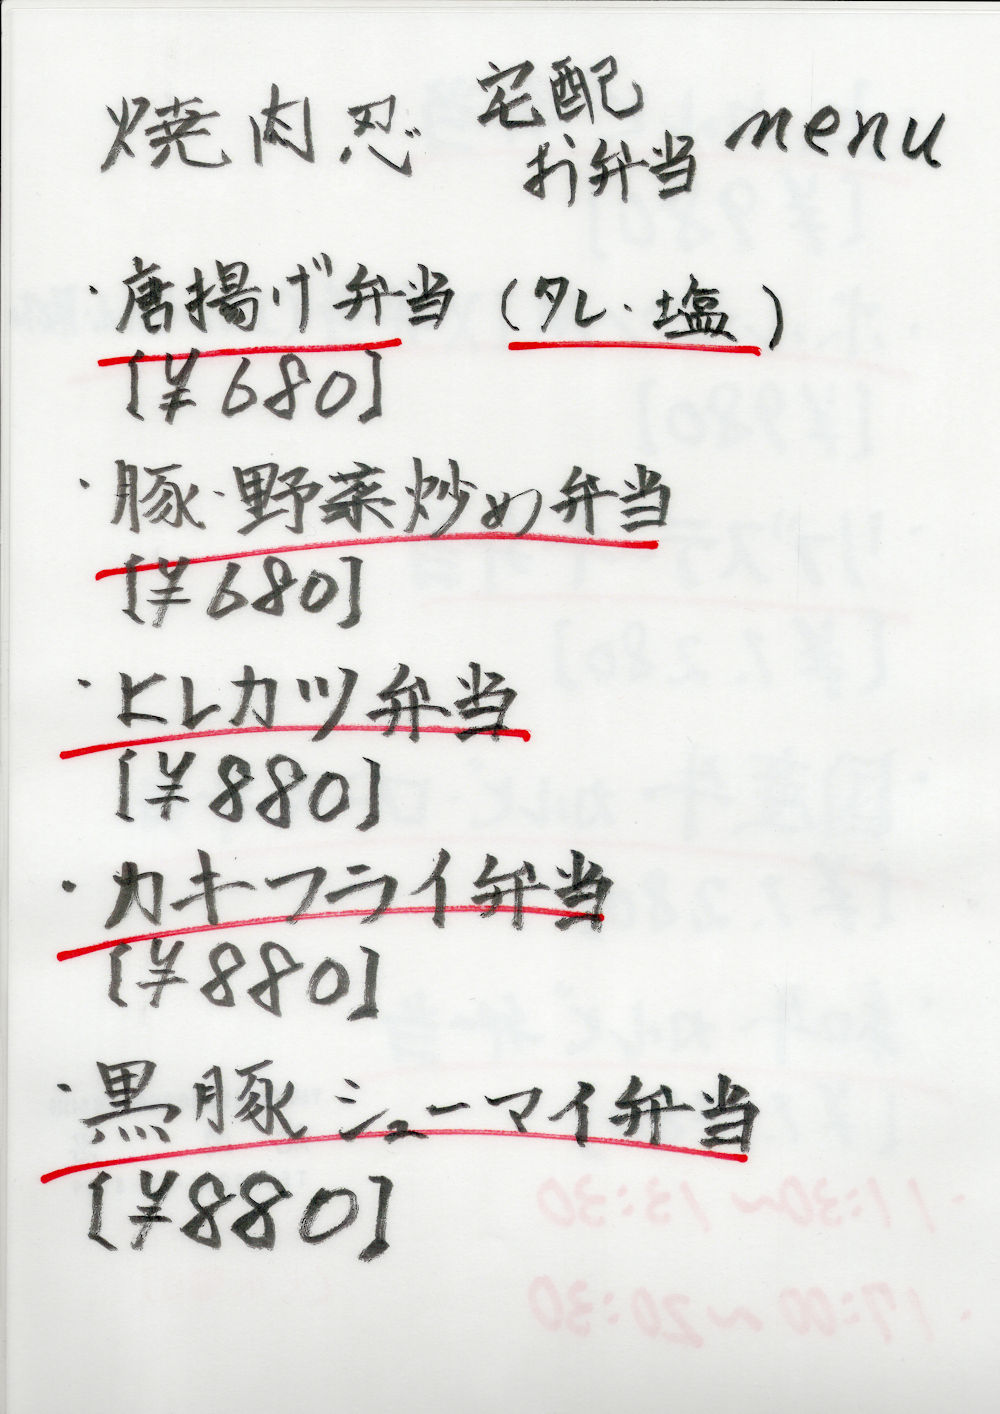 焼肉忍 宅配お弁当 menu
・唐揚げ弁当 (タレ・塩)
[¥680]
・豚・野菜炒め弁当
[¥680]
・ヒレカツ弁当
[¥880]
・カキフライ弁当
[¥880]
・黒豚シューマイ弁当
[¥880]